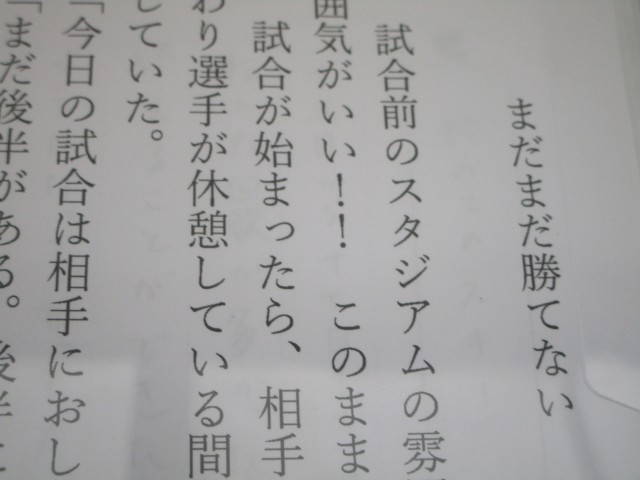 まだまだ勝てない
試合前のスタジアムの雰
囲気がいい！！　このまま
試合が始まったら、相手
わり選手が休憩している間
していた。
「今日の試合は相手におし
「まだ後半がある。後半に